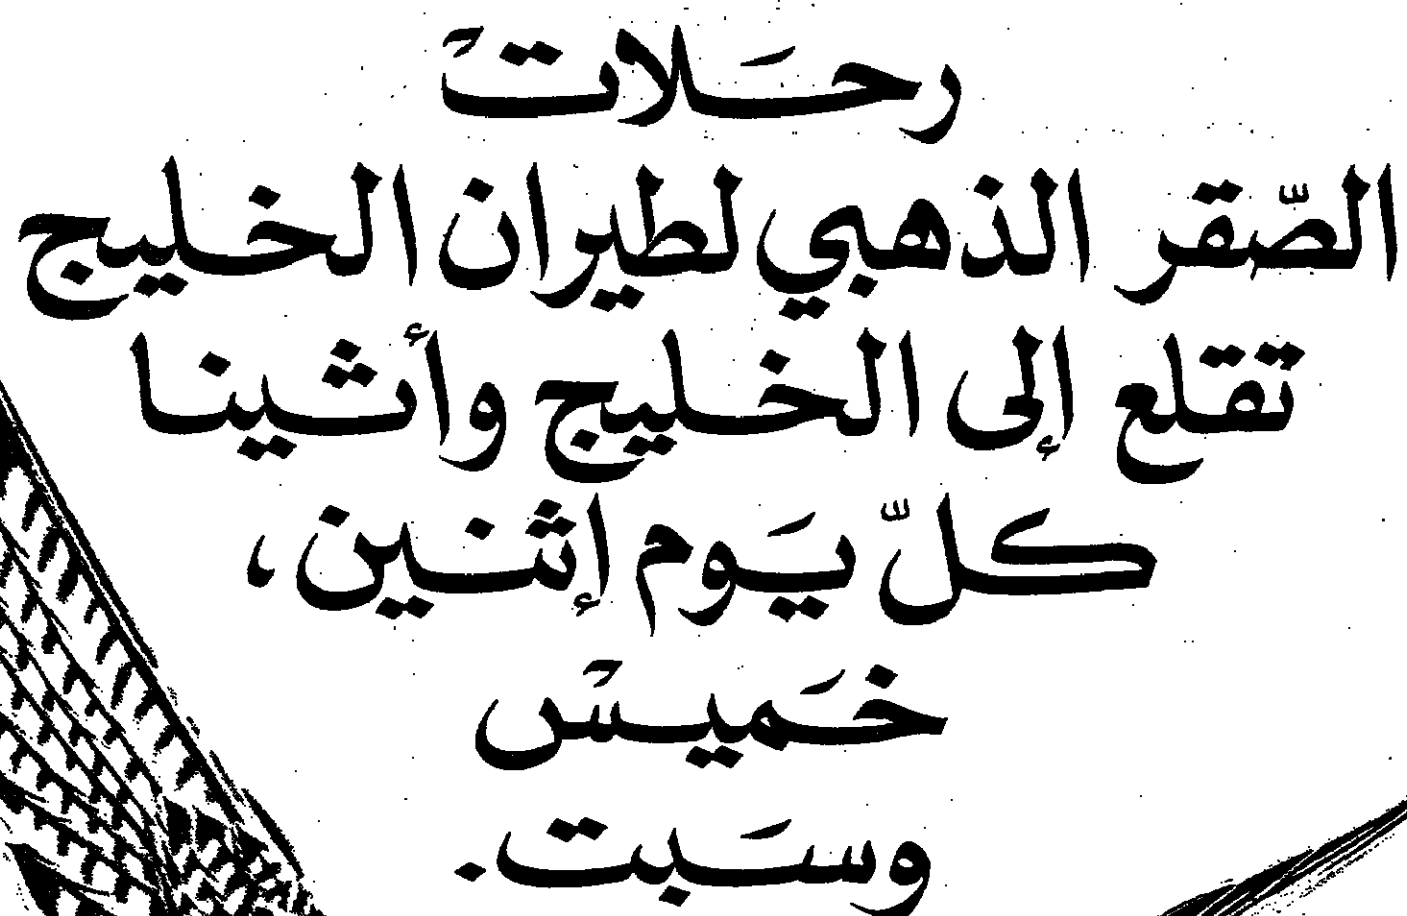 رحَلاتْ
الصّقر الذهبي لطيران الخليج
تقلع إلى الخليج وأثينا
كلّ يَوم إثنين ،
خَميسْ
وسَبت.